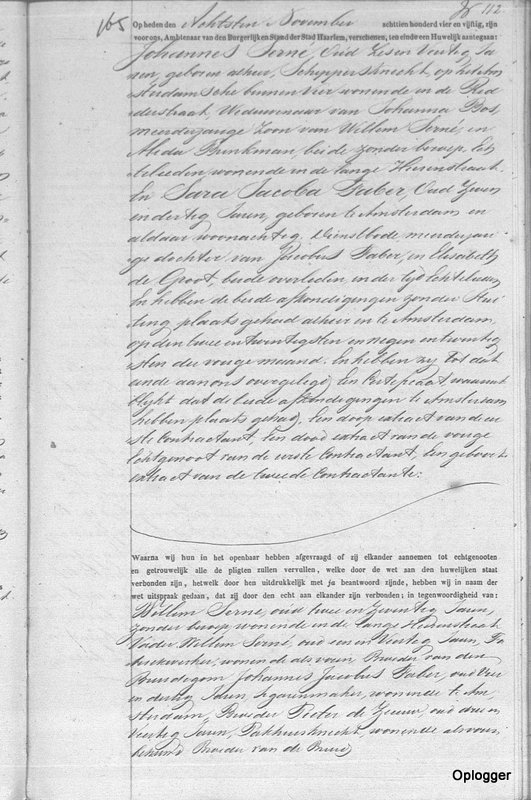 112
165
Op heden den Achtsten November achttien honderd vier en vijftig, zijn
voor ons, Ambtenaar van den Burgerlijken Stand der Stad Haarlem, verschenen, ten einde een Huwelijk aantegaan:
Johannes Serné, Oud Zes en Veertig Ja-
ren, geboren alhier, Schippersknecht, op het Am-
sterdamsche binnen Veer wonende in de Rid-
derstraat, Weduwenaar van Johanna Bos,
meerderjarige Zoon van Willem Serné, en
Alida Brinkman, beide zonder beroep, Ech-
telieden, wonende in de lange Heerenstraat.
En Sara Jacoba Faber, Oud Zeven
en dertig Jaren, geboren te Amsterdam en
aldaar woonachtig, Dienstbode, meerderjari-
ge dochter van Jacobus Faber, en Elisabeth
de Groot, beide overleden, in der tijd Echtelieden
En hebben de beide afkondigingen zonder Stui-
ting plaats gehad alhier en te Amsterdam,
op den twee en twintigsten en negen en twintig-
sten der vorige maand. En hebben zij tot dat
einde aan ons overgelegd, Een Certificaat waaruit
blijkt dat de beide afkondigingen te Amsterdam
hebben plaats gehad, Een doop extract van de eer-
ste Contractant, Een dood extract van de vorige
Echtgenoot van de eerste Contractant, Een geboorte
extract van de tweede Contractante:
Waarna wij hun in het openbaar hebben afgevraagd of zij elkander aannemen tot echtgenooten
en getrouwelijk alle de pligten zullen vervullen, welke door de wet aan den huwelijken staat
verbonden zijn, hetwelk door hen uitdrukkelijk met ja beantwoord zijnde, hebben wij in naam der
wet uitspraak gedaan, dat zij door den echt aan elkander zijn verbonden; in tegenwoordigheid van:
Willem Serné, oud twee en Zeventig Jaren,
zonder beroep, wonende in de lange Heerenstraat
Vader Willem Serné, oud een en Veertig Jaren, Fa-
briekwerker, wonende als voren, Broeder van den
Bruidegom Johannes Jacobus Faber, oud Vier
en dertig Jaren, Segarenmaker, wonende te Am-
sterdam, Broeder Pieter de Zeeuw, oud drie en
Veertig Jaren, Pakhuisknecht, wonende als voren,
behuwd Broeder van de Bruid
Oplogger